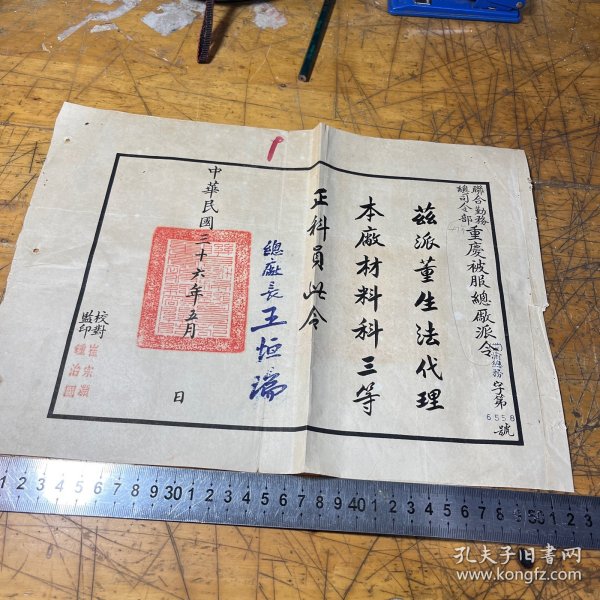 聯合勤務
總司令部
重慶被服總廠派令
字第
6558
號
茲派董生法代理
本廠材料科三等
正科員此令
總廠長王恒瑞
中華民國三十六年五月
日
校對
監印
孔夫子旧书网
www.kongfz.com